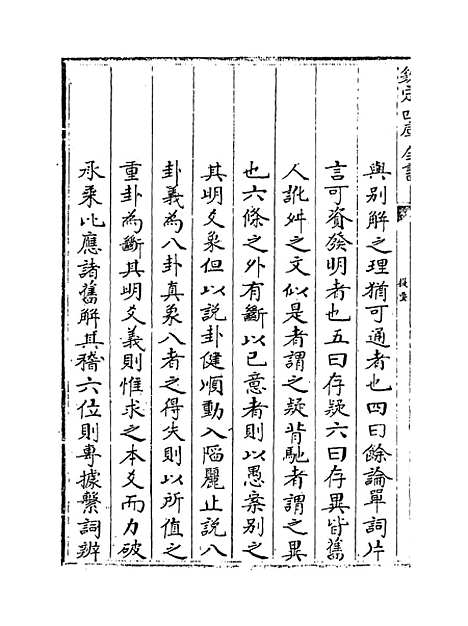 欽定四庫全書
提要
與別解之理猶可通者也四曰餘論單詞片
言可資發明者也五曰存疑六曰存異皆舊
人訛舛之文似是者謂之疑背馳者謂之異
也六條之外有斷以己意者則以愚案別之
其明爻象但以說卦健順動入陷麗止說八
卦義為八卦真象八者之得失則以所值之
重卦為斷其明爻義則惟求之本爻而力破
承乘比應諸舊解其稽六位則專據繫詞辨